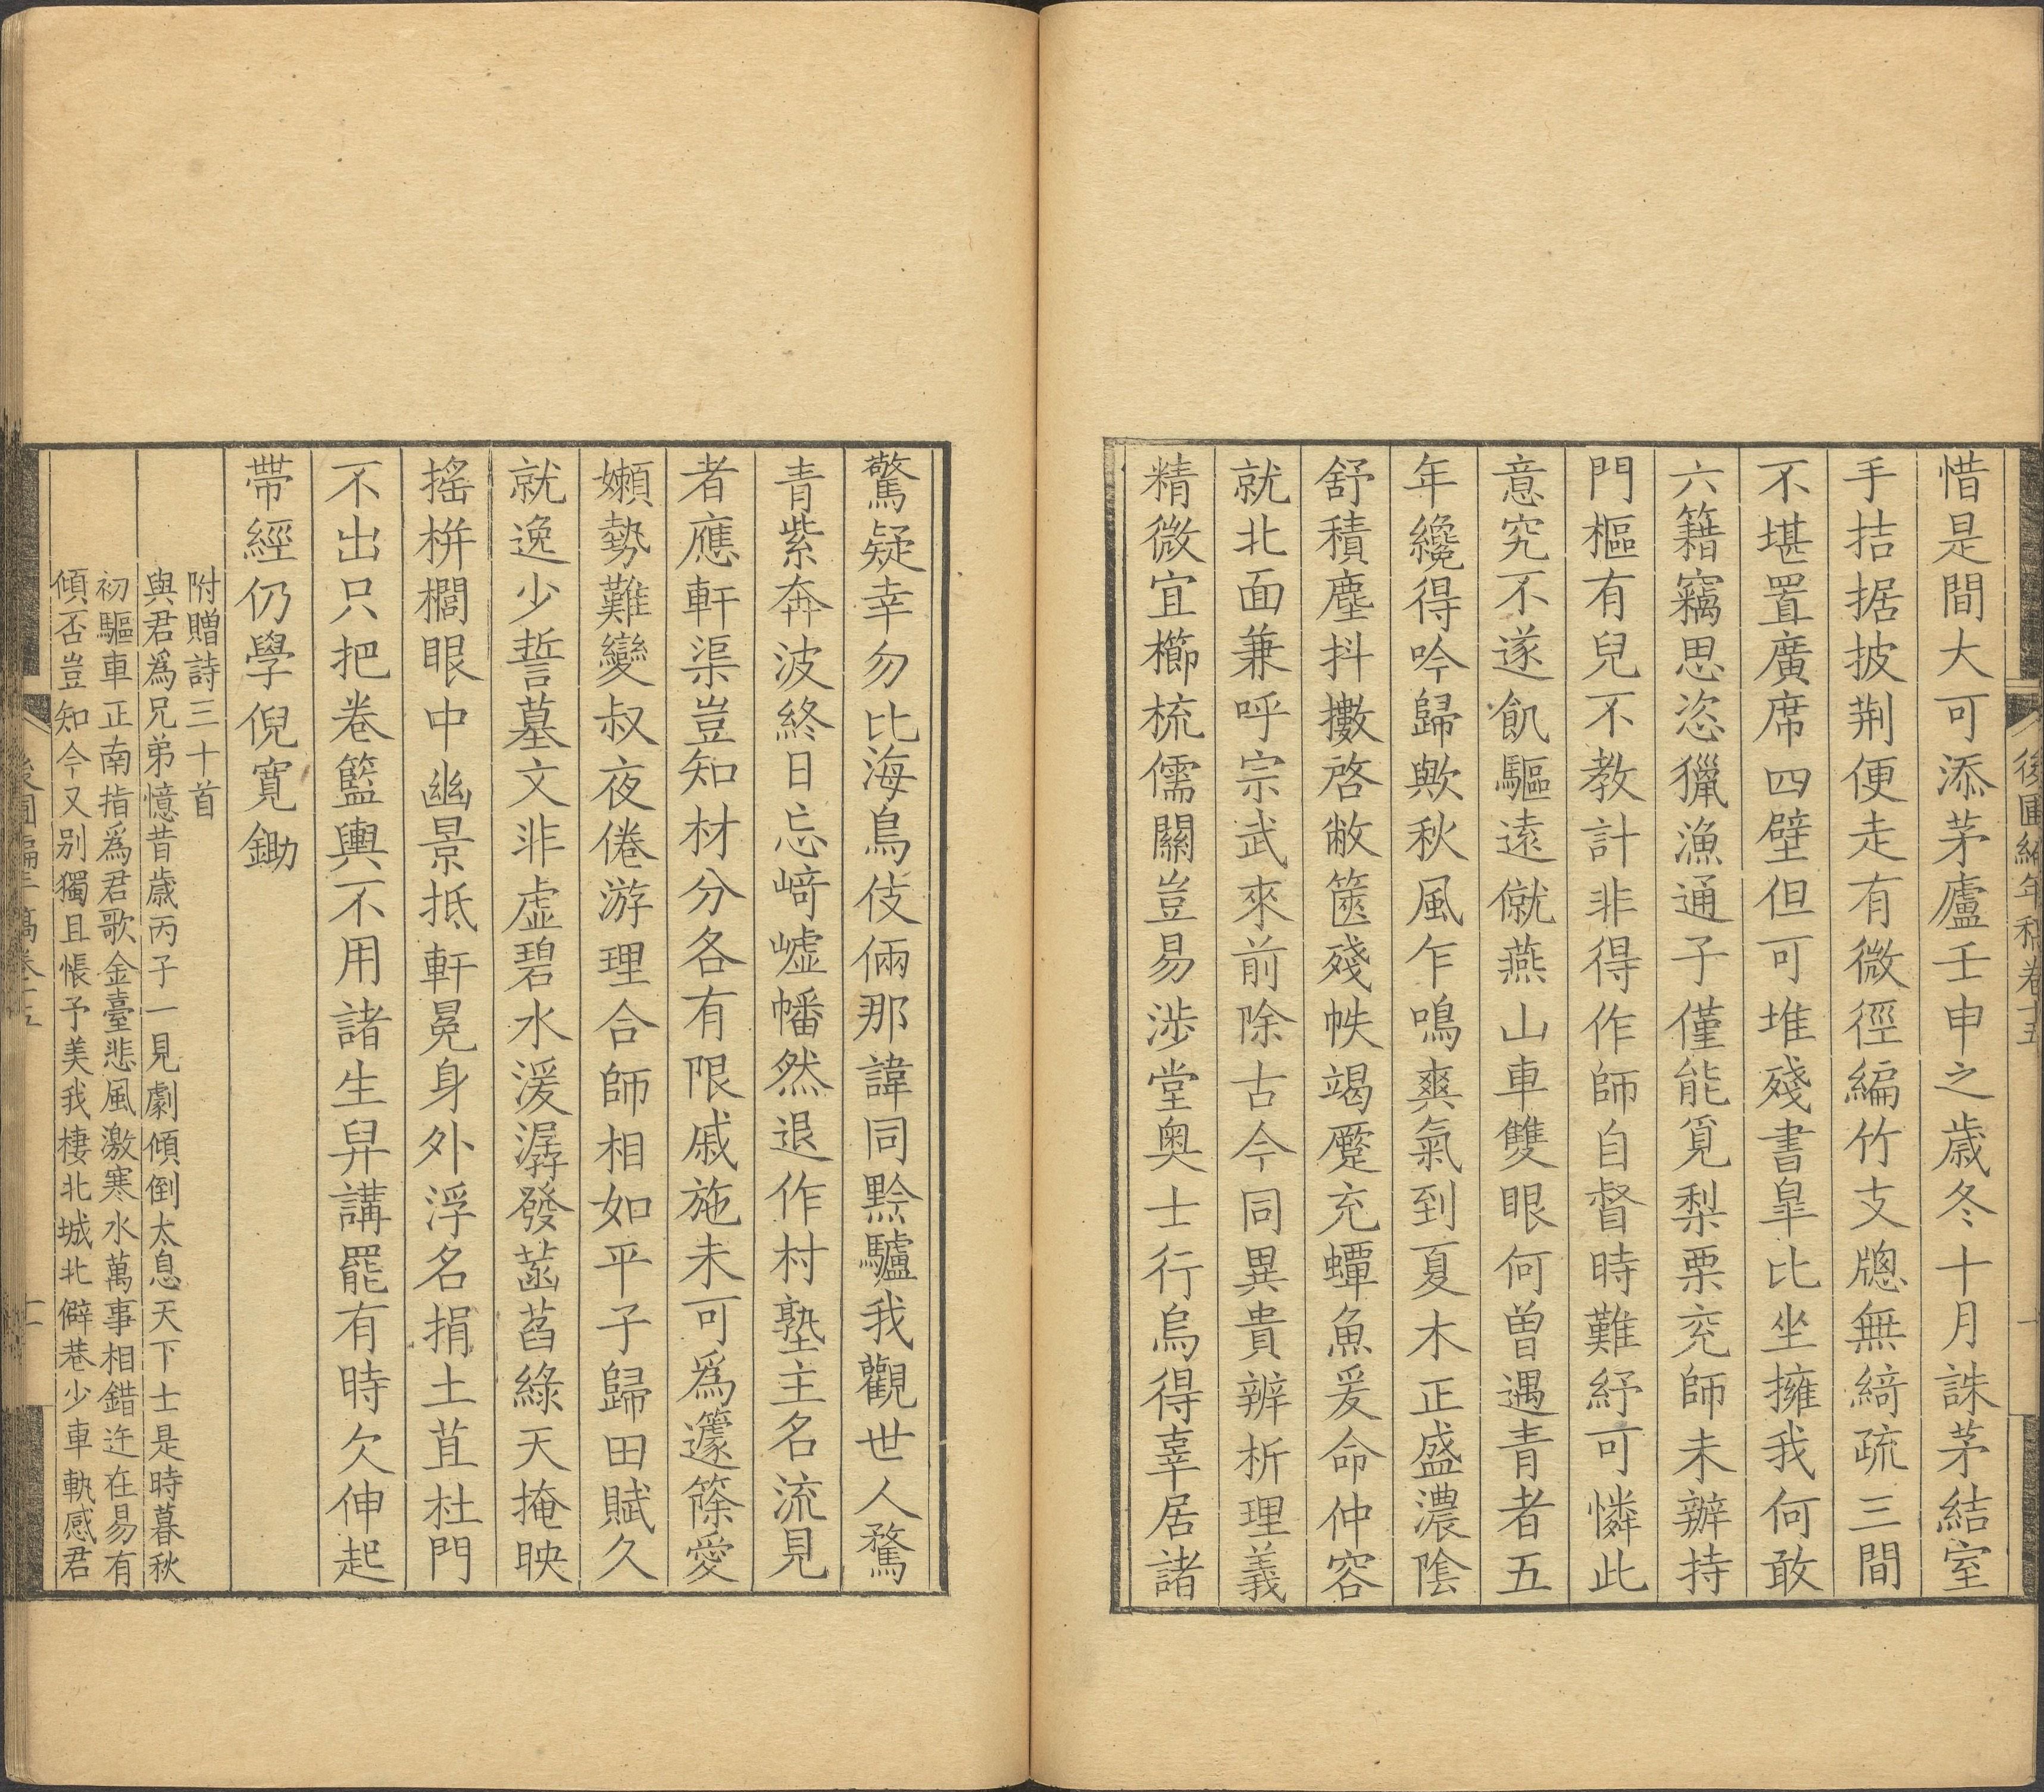 後圃編年稿卷十五
惜是間大可添茅廬壬申之歲冬十月誅茅結室
手拮据披荆便走有微徑編竹支牕無綺疏三間
不堪置廣席四壁但可堆殘書皐比坐擁我何敢
六籍竊思恣獵漁通子僅能覓梨栗兖師未辦持
門樞有兒不教計非得作師自督時難紓可憐此
意究不遂飢驅遠僦燕山車雙眼何曾遇青者五
年纔得吟歸歟秋風乍鳴爽氣到夏木正盛濃陰
舒積塵抖擻啓敝篋殘帙竭蹷充蟫魚爰命仲容
就北面兼呼宗武來前除古今同異貴辨析理義
精微宜櫛梳儒關豈易涉堂奥士行烏得辜居諸
驚疑幸勿比海鳥伎倆那諱同黔驢我觀世人騖
青紫奔波終日忘﨑嘘幡然退作村塾主名流見
者應軒渠豈知材分各有限戚施未可爲籧篨愛
嬾勢難變叔夜倦游理合師相如平子歸田賦久
就逸少誓墓文非虚碧水湲潺發菡萏綠天掩映
搖栟櫚眼中幽景抵軒冕身外浮名捐土苴杜門
不出只把卷籃輿不用諸生舁講罷有時欠伸起
帶經仍學倪寬鋤
附贈詩三十首
與君爲兄弟憶昔歲丙子一見劇傾倒太息天下士是時暮秋
初驅車正南指爲君歌金臺悲風激寒水萬事相錯迕在易有
傾否豈知今又别獨且悵予美我棲北城北僻巷少車軌感君